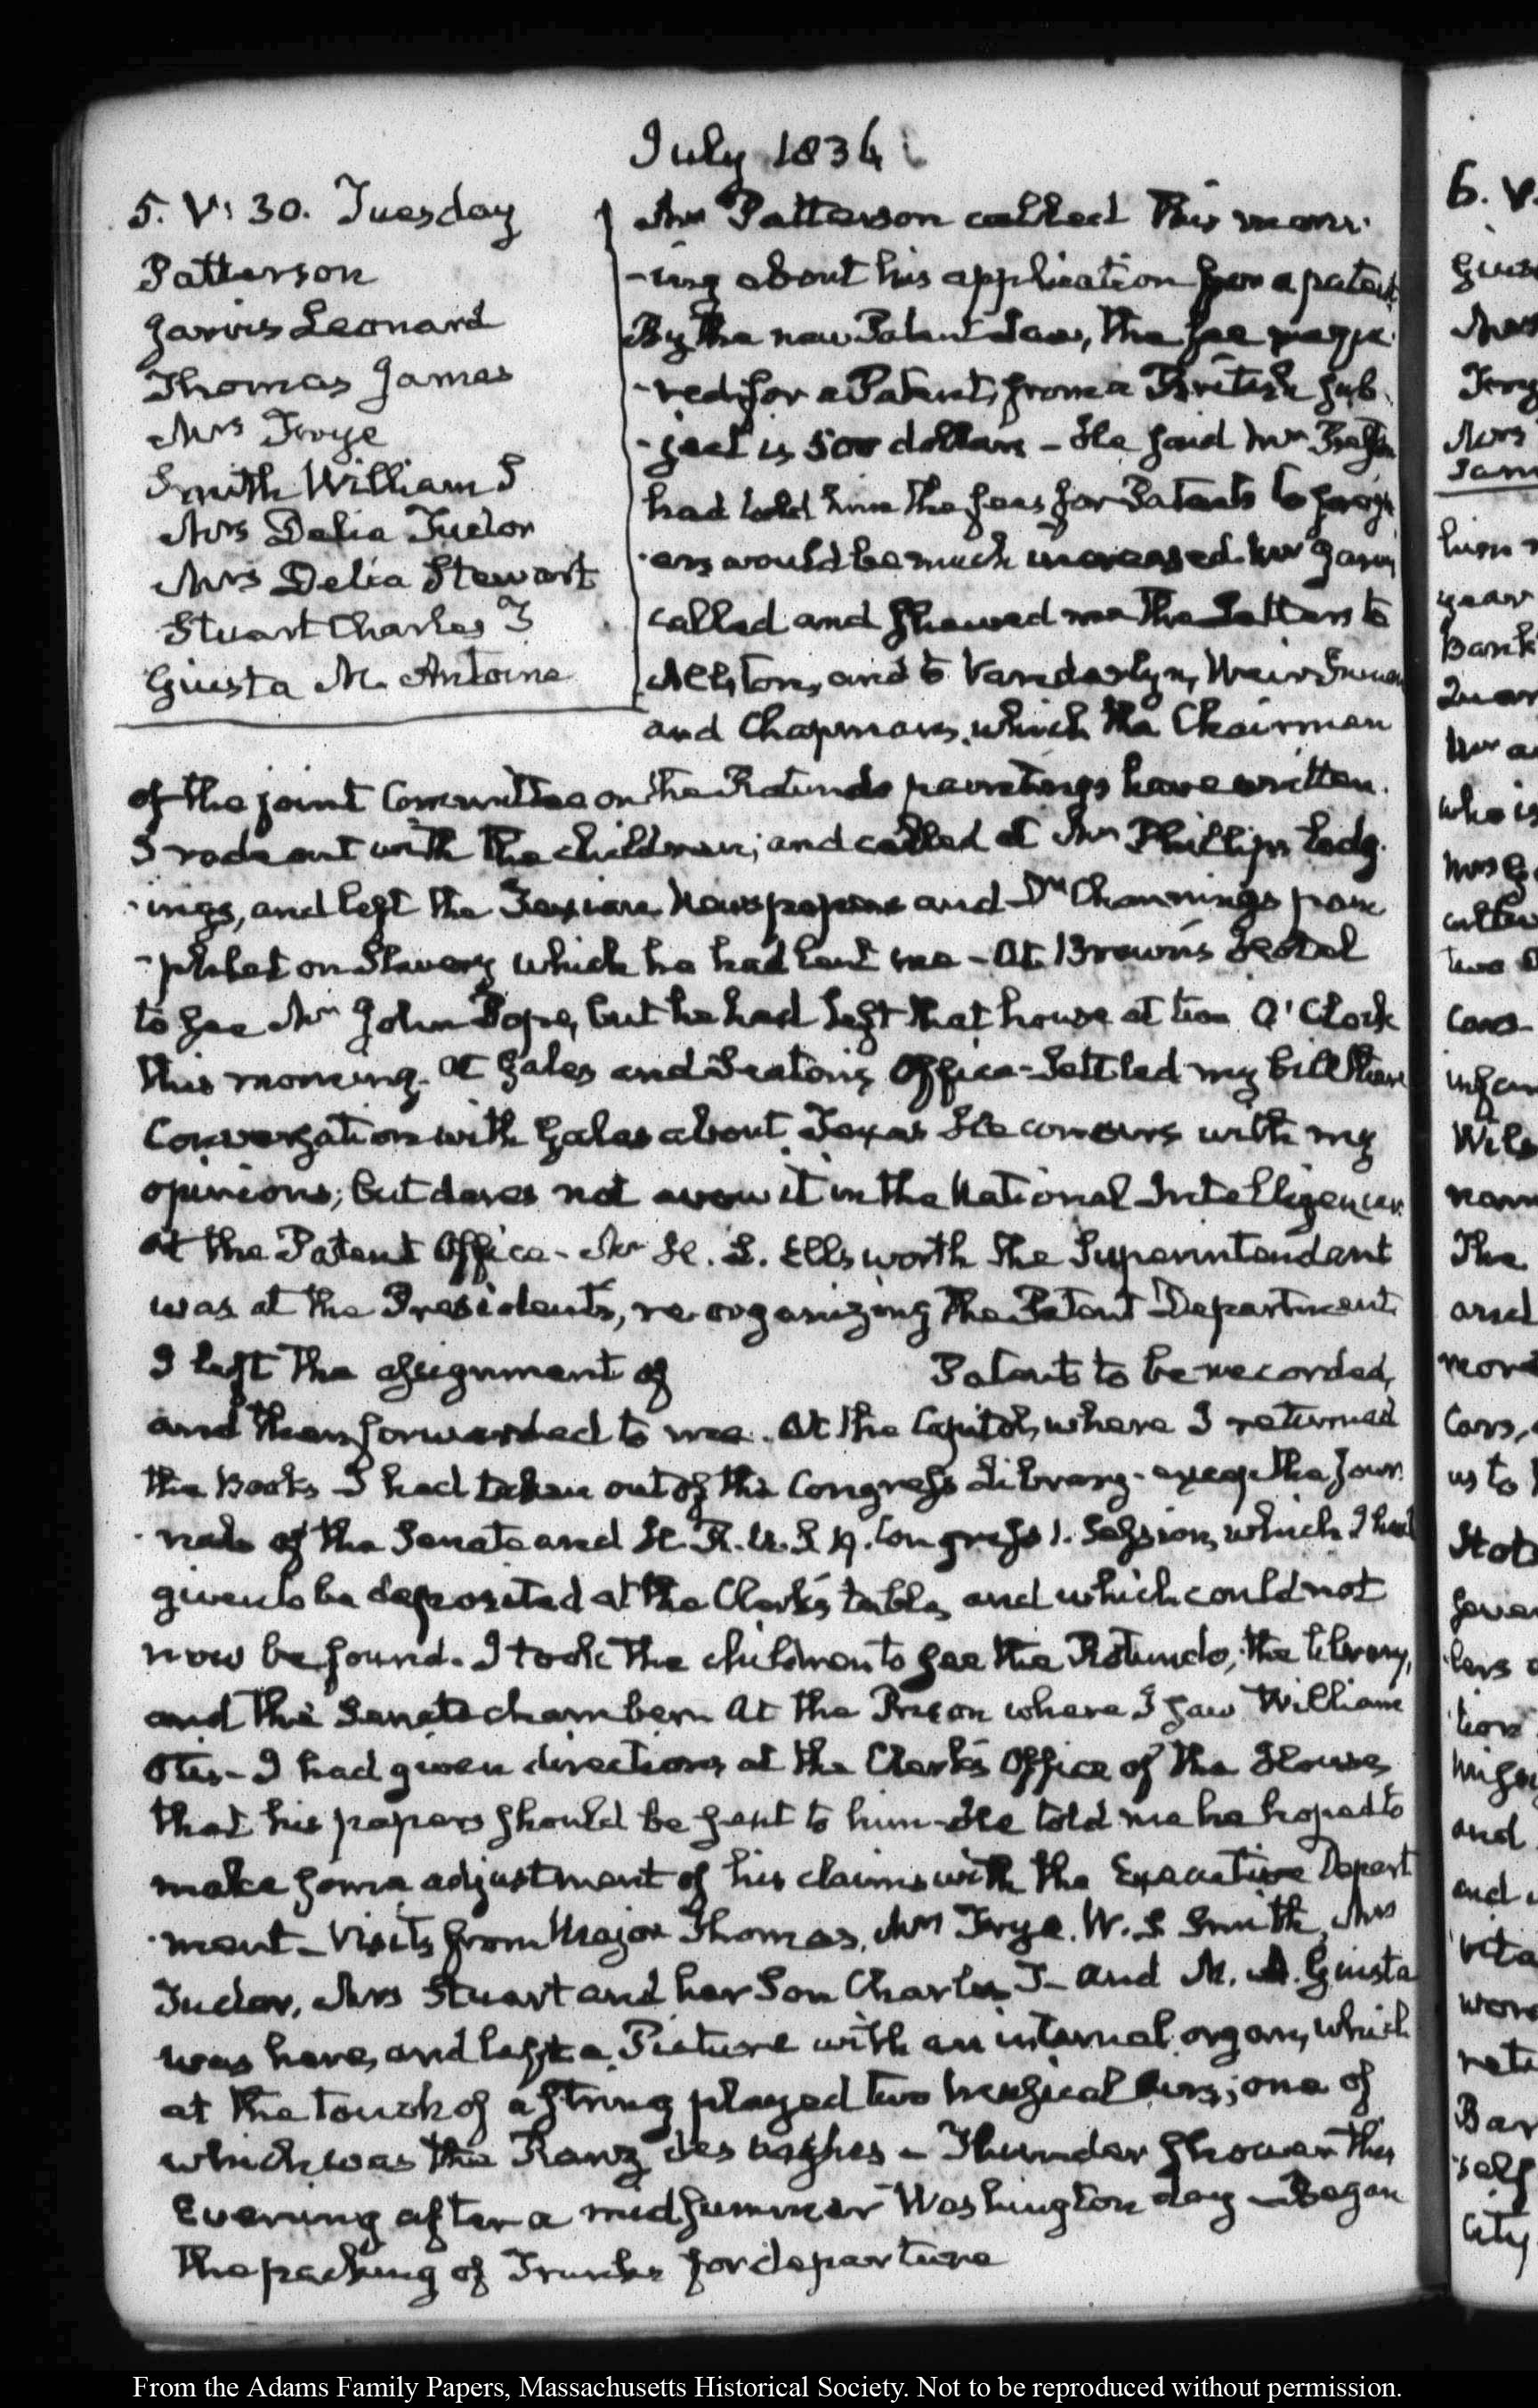 July 1836
5. V: 30. Tuesday
Patterson
Jarvis Leonard
Thomas James
Mrs Frye
Smith William S
Mrs Delia Tudor
Mrs Delia Stewart
Stuart Charles T
Giusta M. Antoine
Mr Patterson called this morn-
-ing about his application for a patent
By the new Patent Law, the fee requi-
-red for a Patent, from a British sub-
-ject is 500 dollars - He said Mr
had told him the fees for Patents to foreign
-ers would be much increased. Mr Jarvis
called and shewed me the Letters to
Allston, and to Vanderlyn, Weir Inman
and Chapman, which the Chairman
of the joint Committee on the Rotundo paintings have written.
I rode out with the children; and called at Mr Phillips's lodg-
-ings, and left the Texian Newspapers and Dr Channing's pam
-phlet on Slavery which he had lent me - At Brown's Hotel
to see Mr John Pope, but he had left that house at two O'Clock
this morning. At Gales and Seaton's Office - Settled my bill there
Conversation with Gales about Texas He concurs with my
opinions; but dares not avow it in the National Intelligencer.
At the Patent Office - Mr H. L. Ellsworth the Superintendant
was at the Presidents, re-organizing the Patent Department
I left the assignment of Patents to be recorded,
and then forwarded to me. At the Capitol, where I returned
the Books I had taken out of the Congress Library - except the Jour
-nals of the Senate and H. R. U. S. Congress 1. Session, which I had
given to be deposited at the Clerk's table, and which could not
now be found. I took the children to see the Rotundo, the library,
and the Senate chamber. At the Prison where I saw William
Otis - I had given directions at the Clerk's Office of the House,
that his papers should be sent to him - He told me he hoped to
make some adjustment of his claims with the Executive Depart
-ment - Visits from Major Thomas, Mrs Frye, W. S Smith, Mrs
Tudor, Mrs Stuart and her Son Charles T - and M. A. Giusta
was here, and left a Picture with an internal organ, which
at the touch of a string played two musical airs; one of
which was the Ranz des vaches - Thunder shower this
Evening after a midsummer Washington day - Began
the packing of Trunks for departure
6. V.
From the Adams Family Papers, Massachusetts Historical Society. Not to be reproduced without permission.